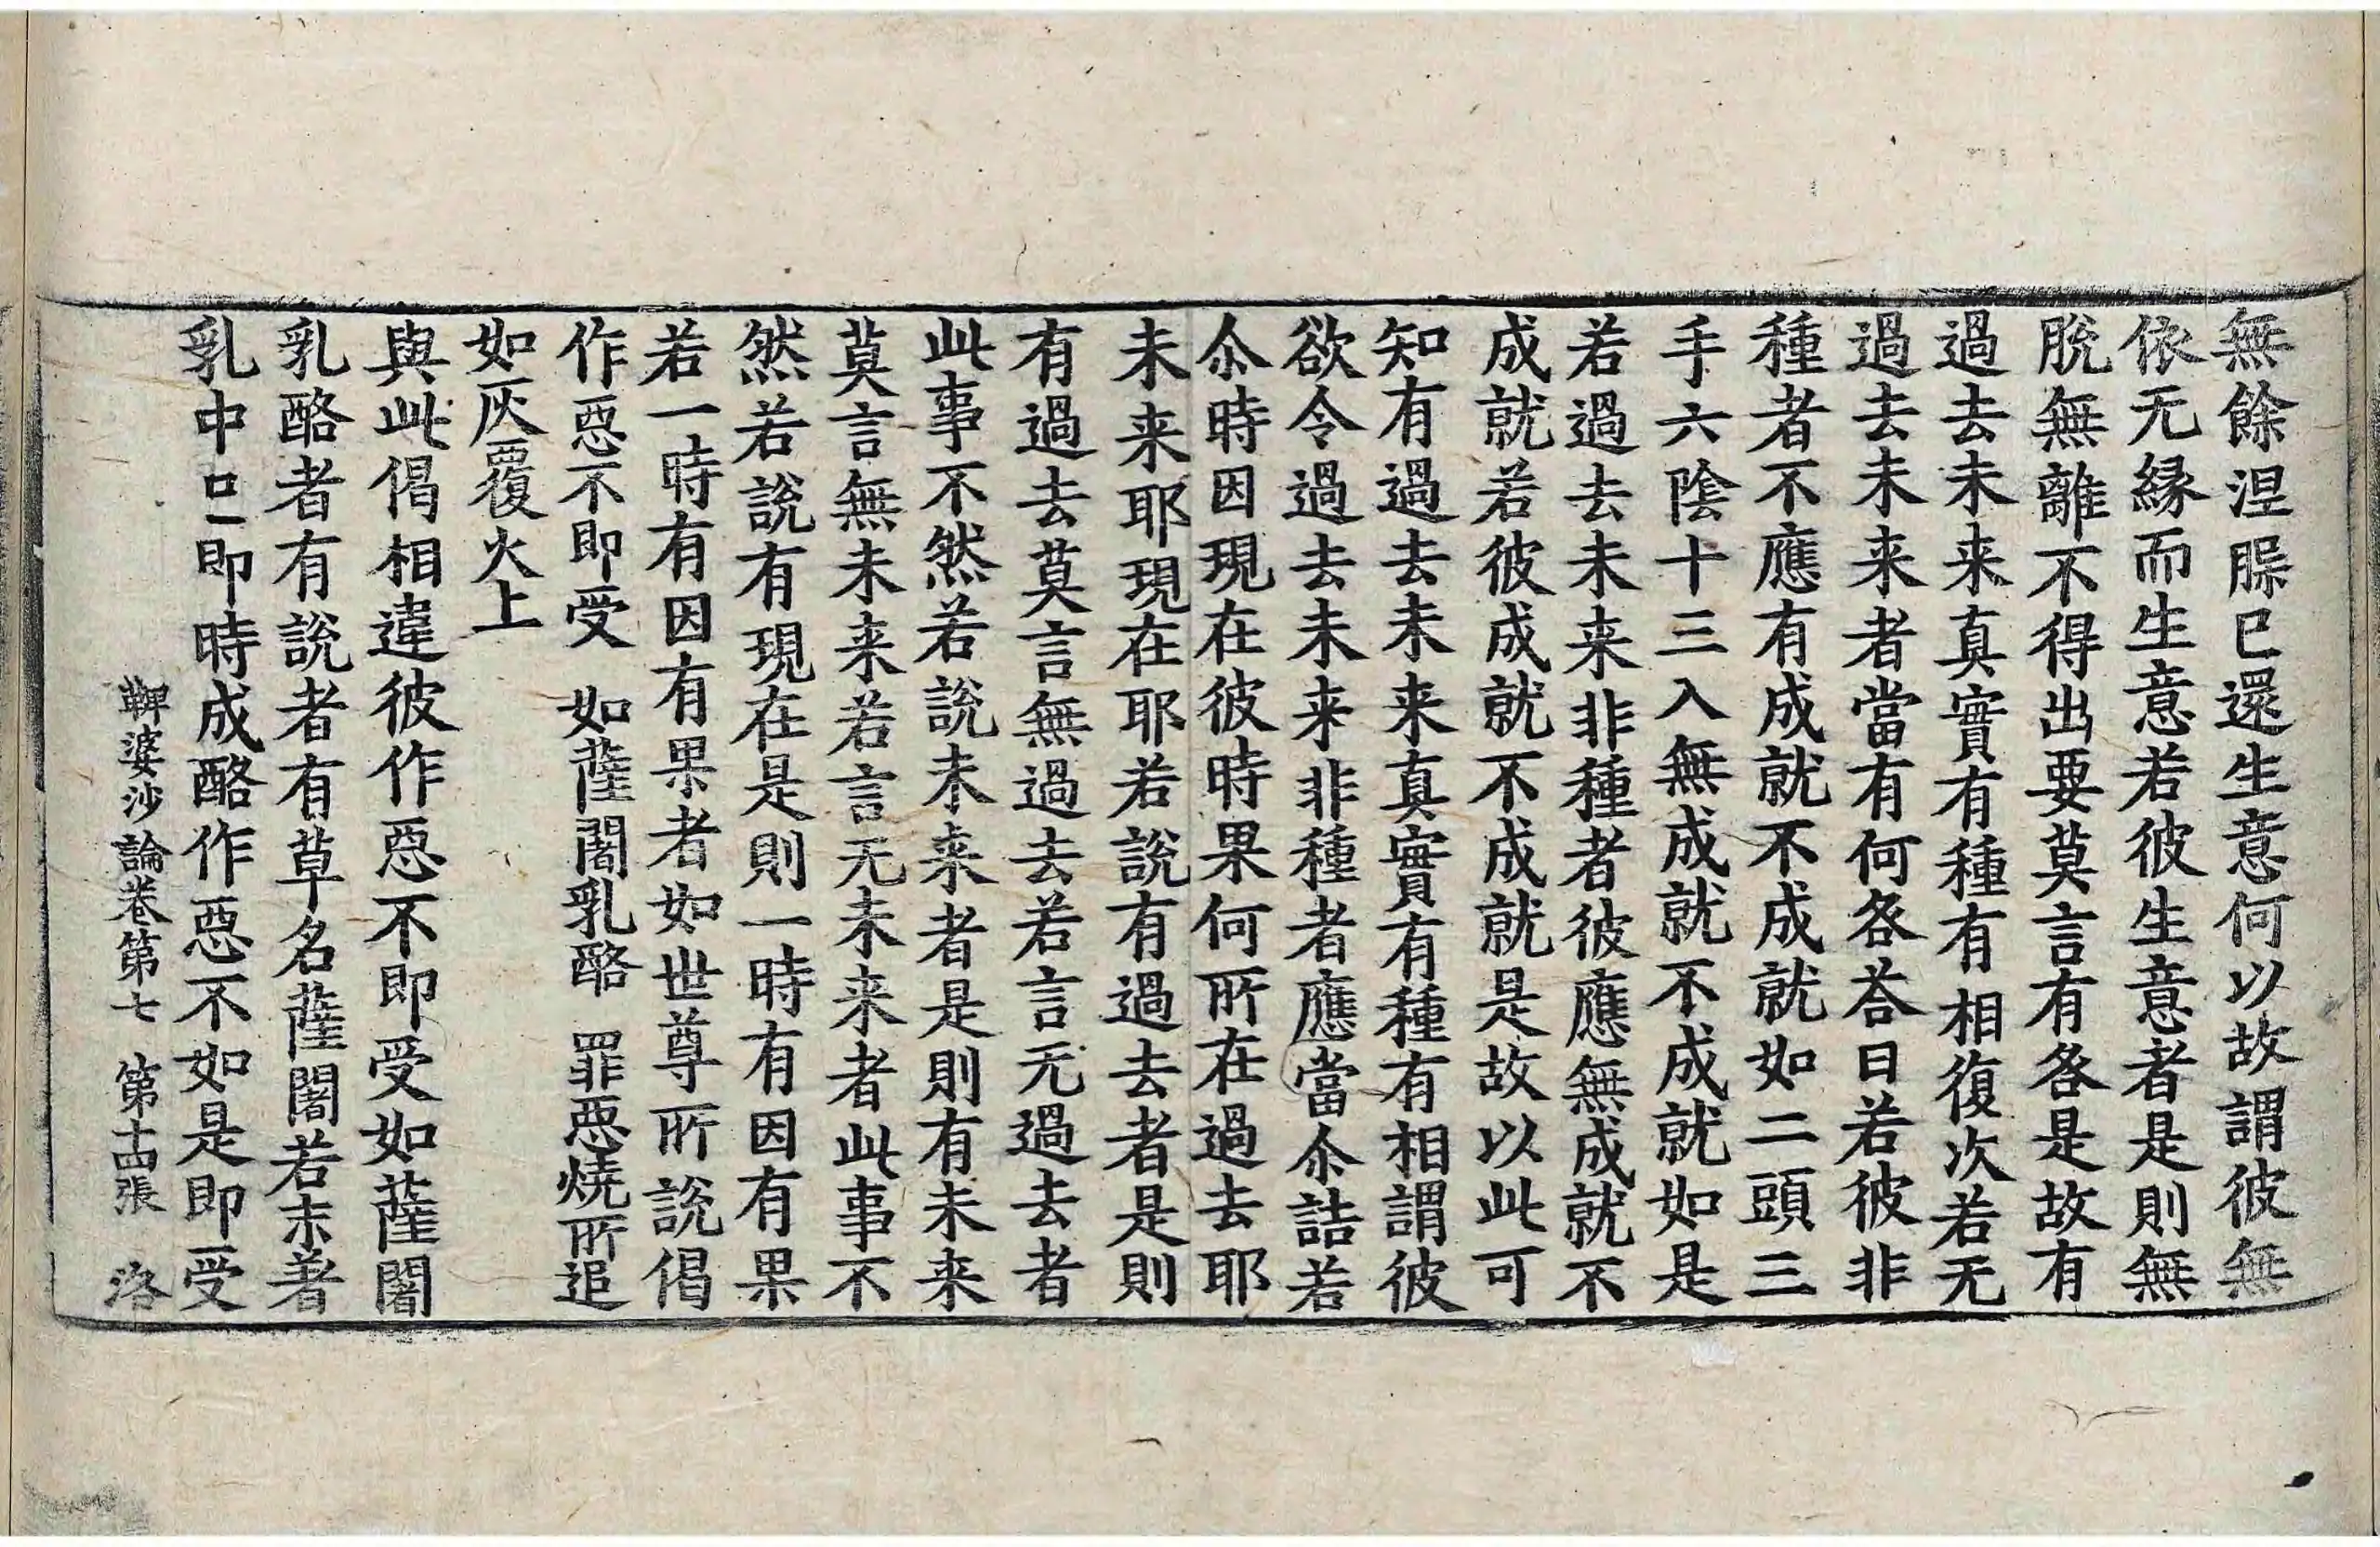 無餘涅脲已還生意何以故謂彼無
依无縁而生意若彼生意者是則無
脫無離不得出要莫言有咎是故有
過去未来真實有種有相復次若无
過去未来者當有何咎荅曰若彼非
種者不應有成就不成就如二頭三
手六陰十三入無成就不成就如是
若過去未来非種者彼應無成就不
成就若彼成就不成就是故以此可
知有過去未来真實有種有相謂彼
欲令過去未来非種者應當尒詰若
尒時因現在彼時果何所在過去耶
未来耶現在耶若說有過去者是則
有過去莫言無過去若言无過去者
此事不然若說未来者是則有未来
莫言無未来若言无未来者此事不
然若說有現在是則一時有因有果
若一時有因有果者如世尊所說偈
作惡不即受　如薩闍乳酪　罪惡燒所追
如灰覆火上
與此偈相違彼作惡不即受如薩闍
乳酪者有說者有草名薩闍若末著
乳中即時成酪作惡不如是即受
鞞婆沙論卷第七　第十四張　洛